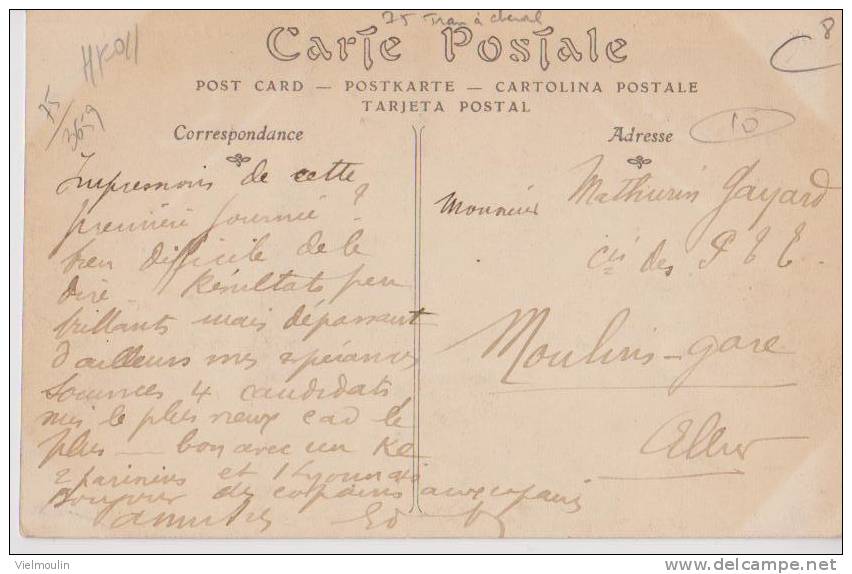 75 Tram à cheval
8
Carte Postale
HK011
POST CARD — POSTKARTE — CARTOLINA POSTALE
TARJETA POSTAL
75/3659
10
Correspondance
Adresse
Impressions de cette
première journée ?
bien difficile de le
dire. Résultats peu
brillants mais dépassent
d'ailleurs mes espérances
Sommes 4 candidats
mis le plus vieux cad le
plus — bon avec un
2 parisiens et 1 lyonnais
Bonjour des copains aux copains
amitiés
Monsieur Mathurin Gayard
cis des P T T.
Moulins-gare
Allier
Vielmoulin
www.delcampe.net